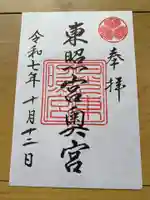 奉拝
東照宮奥宮
令和七年十月十二日